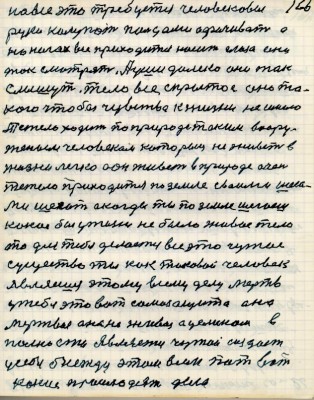 на все это требуется человековай 166
руки
на ногах все приходится носит глаза они
так смотрят. Души далеко они так
слышут. тело все скрытое оно та-
кого чтобы чувства к жизни не имело
Тежело ходит по природе таким воору-
женым человекам которыи не живет в
жизни легко а он живет в природе очен
тежело приходится по земле своими шага-
ми а когда ты по земле шагаеш
какоя бы у жизни не было живае тело
это для тебя делается все это чужое
существо ты как таковой человек
являеш этому всему делу мертв
у тебя это вот самозащита она
мертвая она не живая а целиком в
полности является чужой создает
у себя между этом всем вот вот
какие происходят дела